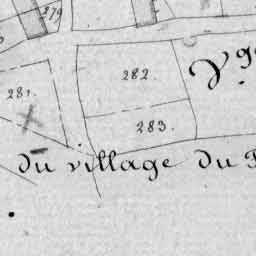 279
282.
281.
283.
du village du